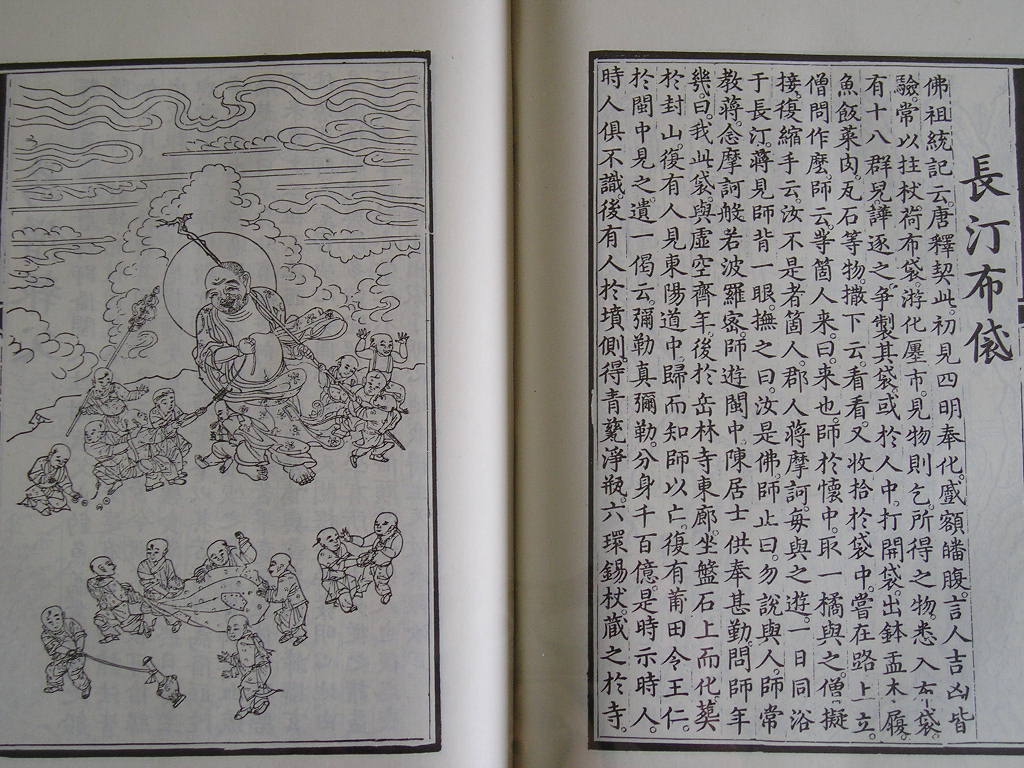 長汀布袋
佛祖統記云。唐釋契此。初見四明奉化。蹙額皤腹。言人吉凶皆
驗。常以拄杖荷布袋。游化廛市。見物則乞。所得之物。悉入布袋。
有十八群兒譁逐之。爭製其袋。或於人中。打開袋。出鉢盂木履。
魚飯菜肉。瓦石等物。撒下云。看看。又收拾於袋中。嘗在路上立。
僧問作麼。師云。等箇人來。曰。来也。師於懷中。取一橘與之。僧擬
接。復縮手云。汝不是者箇人。郡人蔣摩訶。每與之遊。一日同浴
于長汀。蔣見師背一眼。撫之曰。汝是佛。師止曰。勿說與人。師常
教蔣。念摩訶般若波羅蜜。師遊閩中。陳居士供奉甚勤。問師年
幾。曰。我此袋。與虛空齊年。後於岳林寺東廊。坐盤石上而化。葬
於封山。復有人見東陽道中。歸而知師以亡。復有莆田令王仁。
於閩中見之。遺一偈云。彌勒真彌勒。分身千百億。是時示時人。
時人俱不識。後有人於墳側。得青甆淨瓶。六環錫杖。藏之於寺。